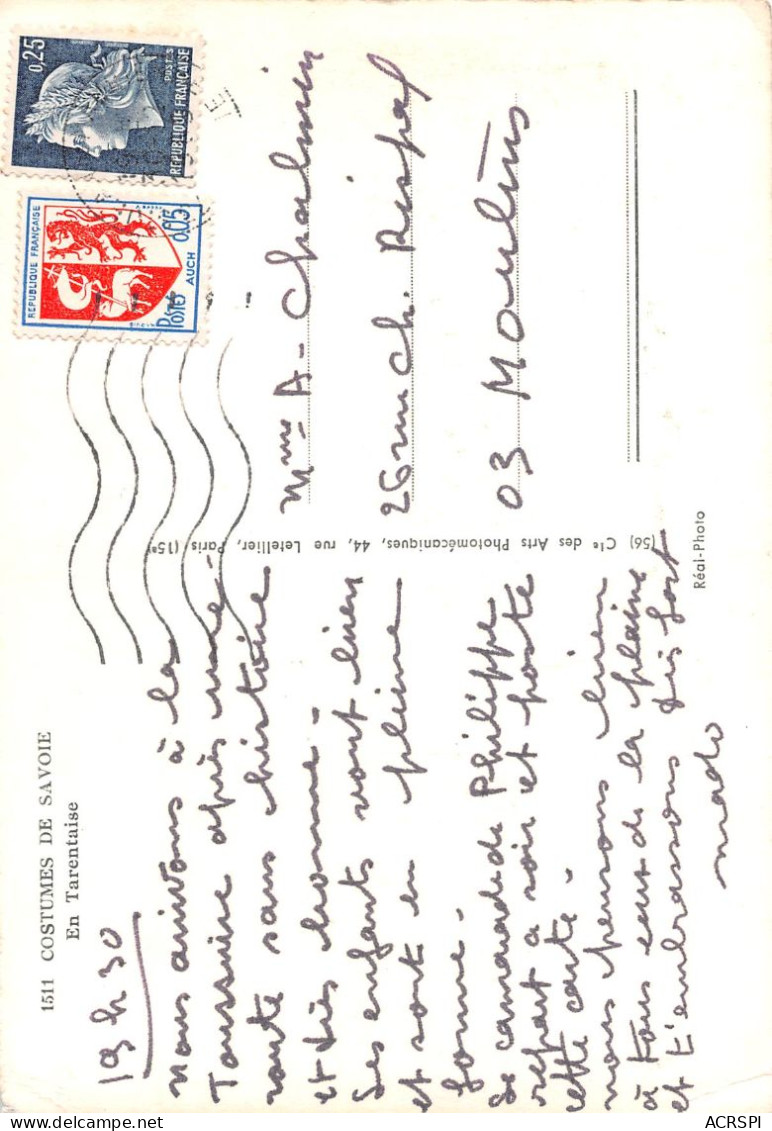 1511 COSTUMES DE SAVOIE
En Tarentaise
19h30
Nous arrivons à la
Toussuire après une
route sans histoire
et très bonne -
Les enfants vont bien
et sont en pleine
forme -
Le camarade de Philippe
repart ce soir et poste
cette carte -
nous pensons bien
à tous ceux de la plaine
et t'embrassons très fort
Mado
(56) Cie des Arts Photomécaniques, 44, rue Letellier, Paris (15e)
0,25
POSTES
REPUBLIQUE FRANÇAISE
REPUBLIQUE FRANÇAISE
0,05
AUCH
POSTES
Mme A- Chalmin
26 rue ch. Rispal
03 Moulins
Réal-Photo
ACRSPI